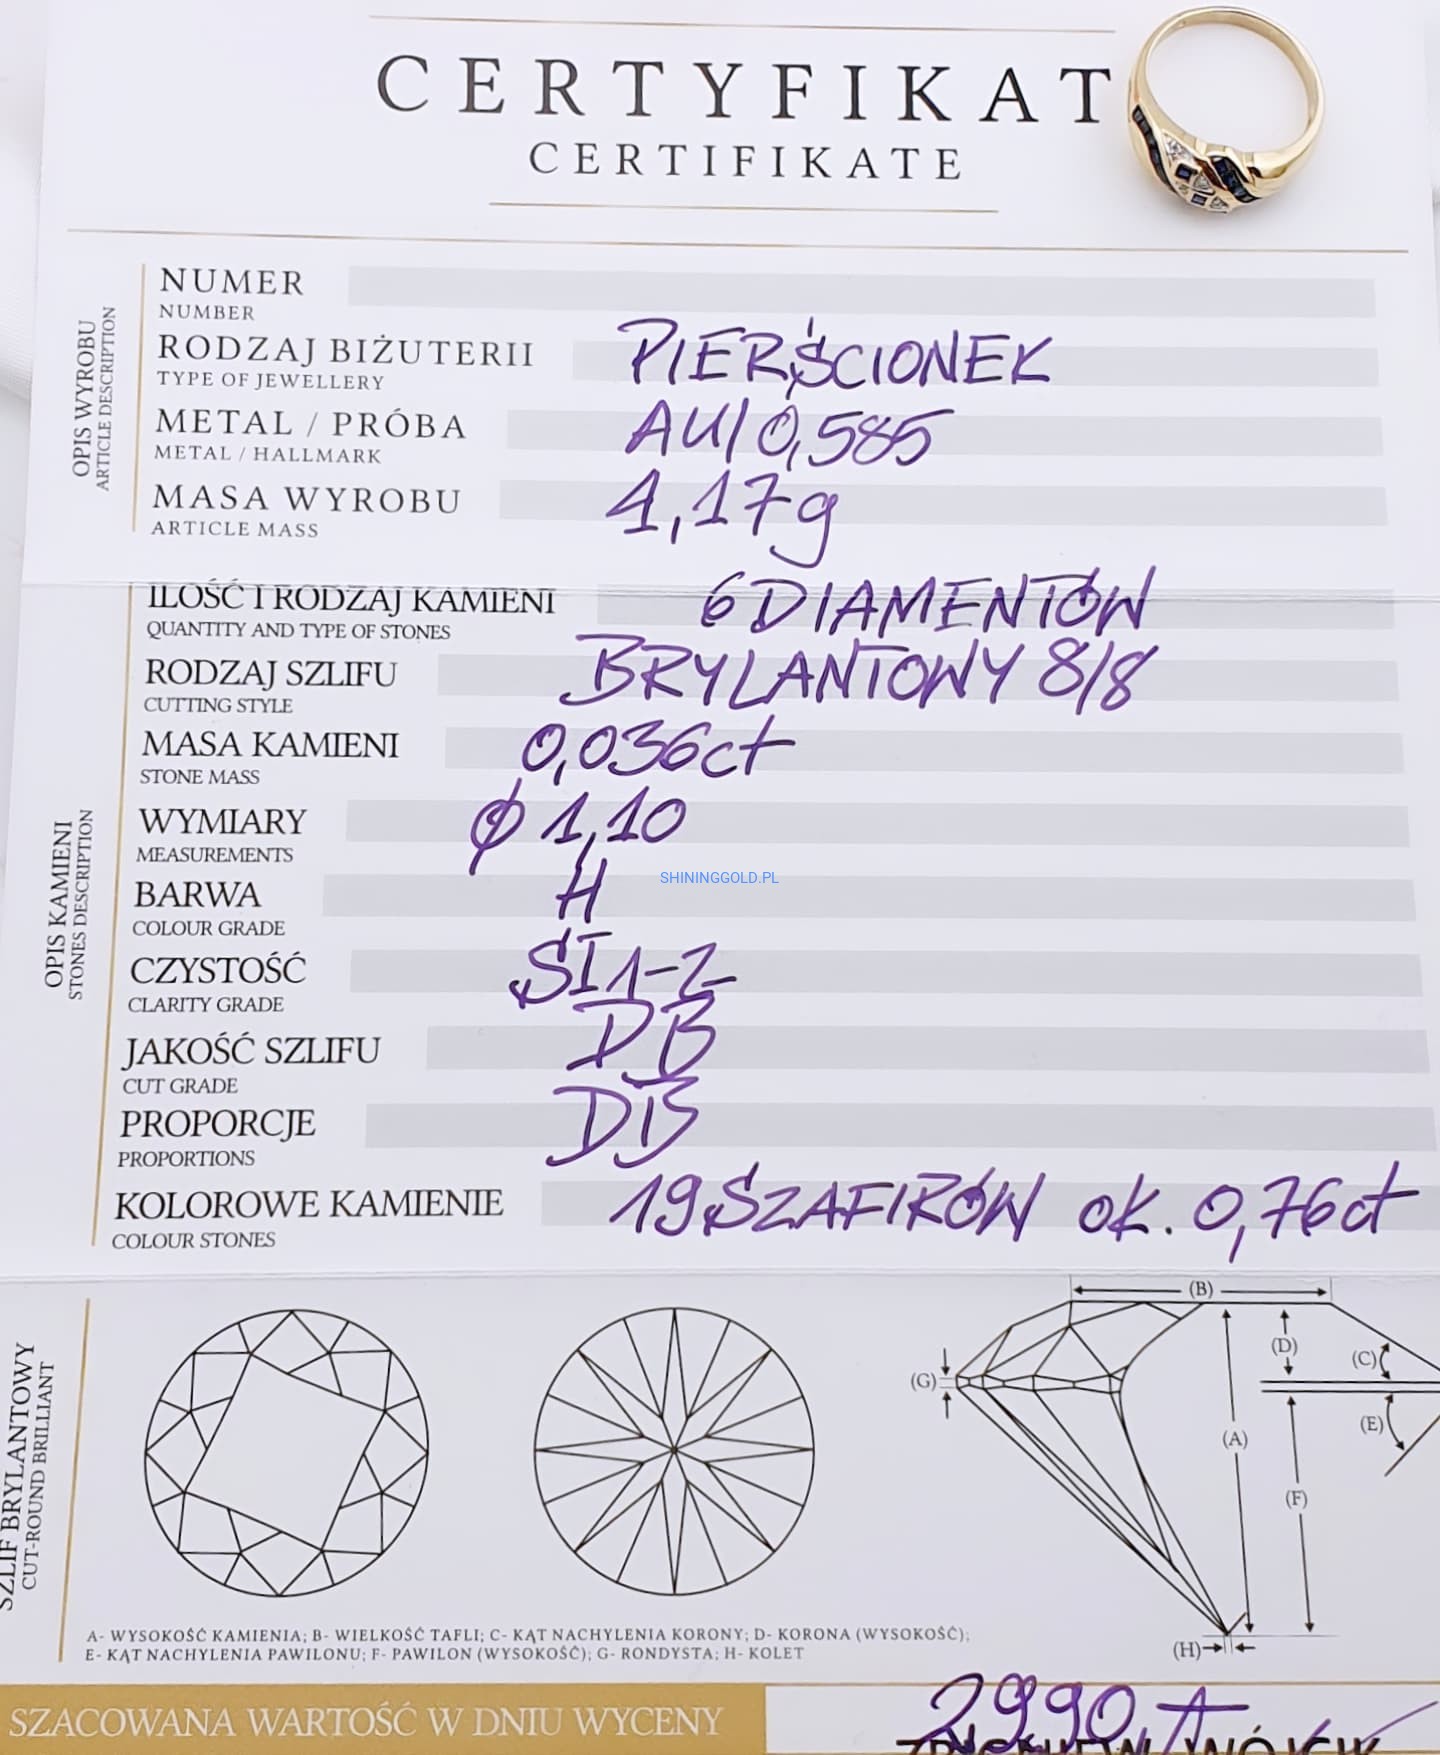 CERTYFIKAT
CERTIFIKATE
OPIS WYROBU
ARTICLE DESCRIPTION
NUMER
NUMBER
RODZAJ BIŻUTERII PIERŚCIONEK
TYPE OF JEWELLERY
METAL / PRÓBA AU/0,585
METAL / HALLMARK
MASA WYROBU 4,17g
ARTICLE MASS
OPIS KAMIENI
STONES DESCRIPTION
ILOŚĆ I RODZAJ KAMIENI 6 DIAMENTÓW
QUANTITY AND TYPE OF STONES
RODZAJ SZLIFU BRYLANTOWY 8/8
CUTTING STYLE
MASA KAMIENI 0,036ct
STONE MASS
WYMIARY ϕ 1,10
MEASUREMENTS
BARWA H
COLOUR GRADE
SHININGGOLD.PL
CZYSTOŚĆ SI1-2
CLARITY GRADE
JAKOŚĆ SZLIFU DB
CUT GRADE
PROPORCJE DB
PROPORTIONS
KOLOROWE KAMIENIE 19 SZAFIRÓW ok. 0,76ct
COLOUR STONES
SZLIF BRYLANTOWY
CUT-ROUND BRILLIANT
(B)
(D)
(C)
(G)
(E)
(A)
(F)
(H)
A- WYSOKOŚĆ KAMIENIA; B- WIELKOŚĆ TAFLI; C- KĄT NACHYLENIA KORONY; D- KORONA (WYSOKOŚĆ);
E- KĄT NACHYLENIA PAWILONU; F- PAWILON (WYSOKOŚĆ); G- RONDYSTA; H- KOLET
SZACOWANA WARTOŚĆ W DNIU WYCENY 2990,-